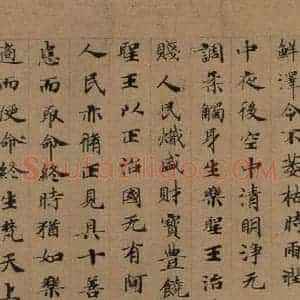 鮮澤令不萎枯時雨
中夜後空中清明淨无
調柔觸身生樂聖王治
賤人民熾盛財寶豐饒
聖王以正治國无有阿
人民亦脩正見具十善
患而取命終時猶如樂
適而便命終生梵天上